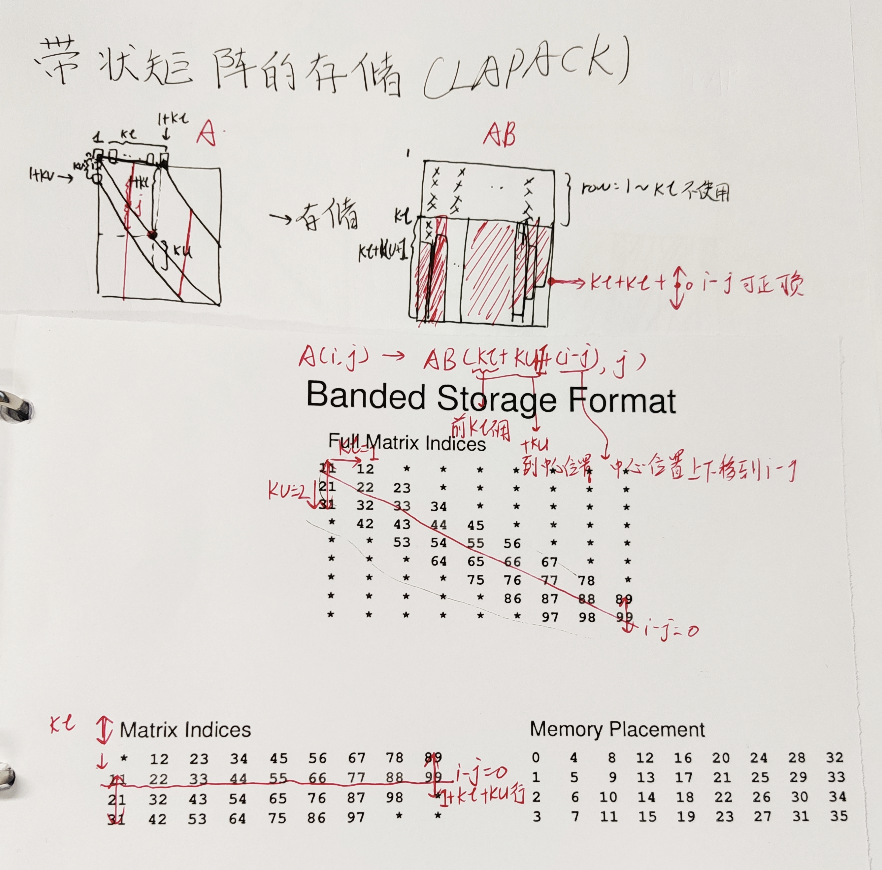 带状矩阵的存储(LAPACK)
1+kl
1 kl A
AB
1+ku →
ku
1+kl
j
ku
→存储
1
kl
kl+ku+1
row=1~kl不使用
→ kl+kl+ 0 i-j可正负
A(i,j) → AB(kl+ku+1+(i-j), j)
Banded Storage Format
前kl不用
+ku
到中心位置
中心位置上下移到i-j
Full Matrix Indices
kl=1
ku=2
11 12 * * * * * * *
21 22 23 * * * * * *
31 32 33 34 * * * * *
* 42 43 44 45 * * * *
* * 53 54 55 56 * * *
* * * 64 65 66 67 * *
* * * * 75 76 77 78 *
* * * * * 86 87 88 89
* * * * * * 97 98 99
i-j=0
kl
Matrix Indices
* 12 23 34 45 56 67 78 89
11 22 33 44 55 66 77 88 99
21 32 43 54 65 76 87 98 *
31 42 53 64 75 86 97 * *
i-j=0
1+kl+ku行
Memory Placement
0 4 8 12 16 20 24 28 32
1 5 9 13 17 21 25 29 33
2 6 10 14 18 22 26 30 34
3 7 11 15 19 23 27 31 35